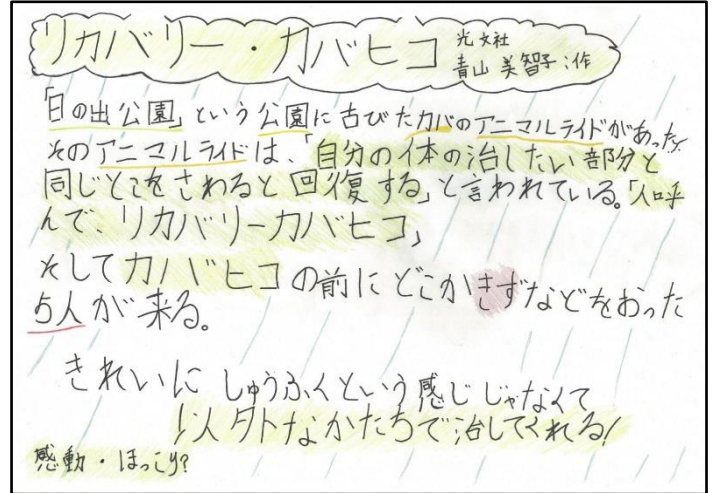 リカバリー・カバヒコ
光文社
青山 美智子:作
「日の出公園」という公園に古びたカバのアニマルライドがあった。
そのアニマルライドは、「自分の体の治したい部分と
同じとこをさわると回復する」と言われている。「人呼
んで、リカバリーカバヒコ」
そしてカバヒコの前にどこかきずなどをおった
5人が来る。
きれいにしゅうふくという感じじゃなくて
以外なかたちで治してくれる!
感動・ほっこり?